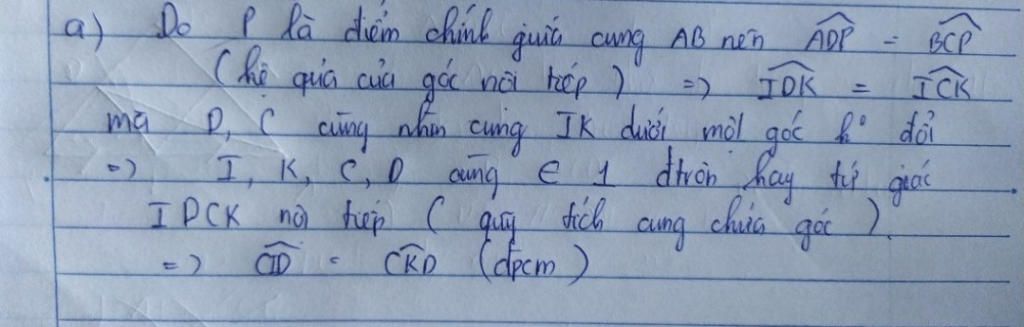 a) Do P là điểm chính giữa cung AB nên \widehat{ADP} = \widehat{BCP}
(hệ quả của góc nội tiếp) => \widehat{IDK} = \widehat{ICK}
mà D, C cùng nhìn cung IK dưới một góc ko đổi
=> I, K, C, D cùng ∈ 1 đtròn hay tứ giác
IDCK nội tiếp (quỹ tích cung chứa góc).
=> \widehat{CID} = \widehat{CKD} (đpcm)